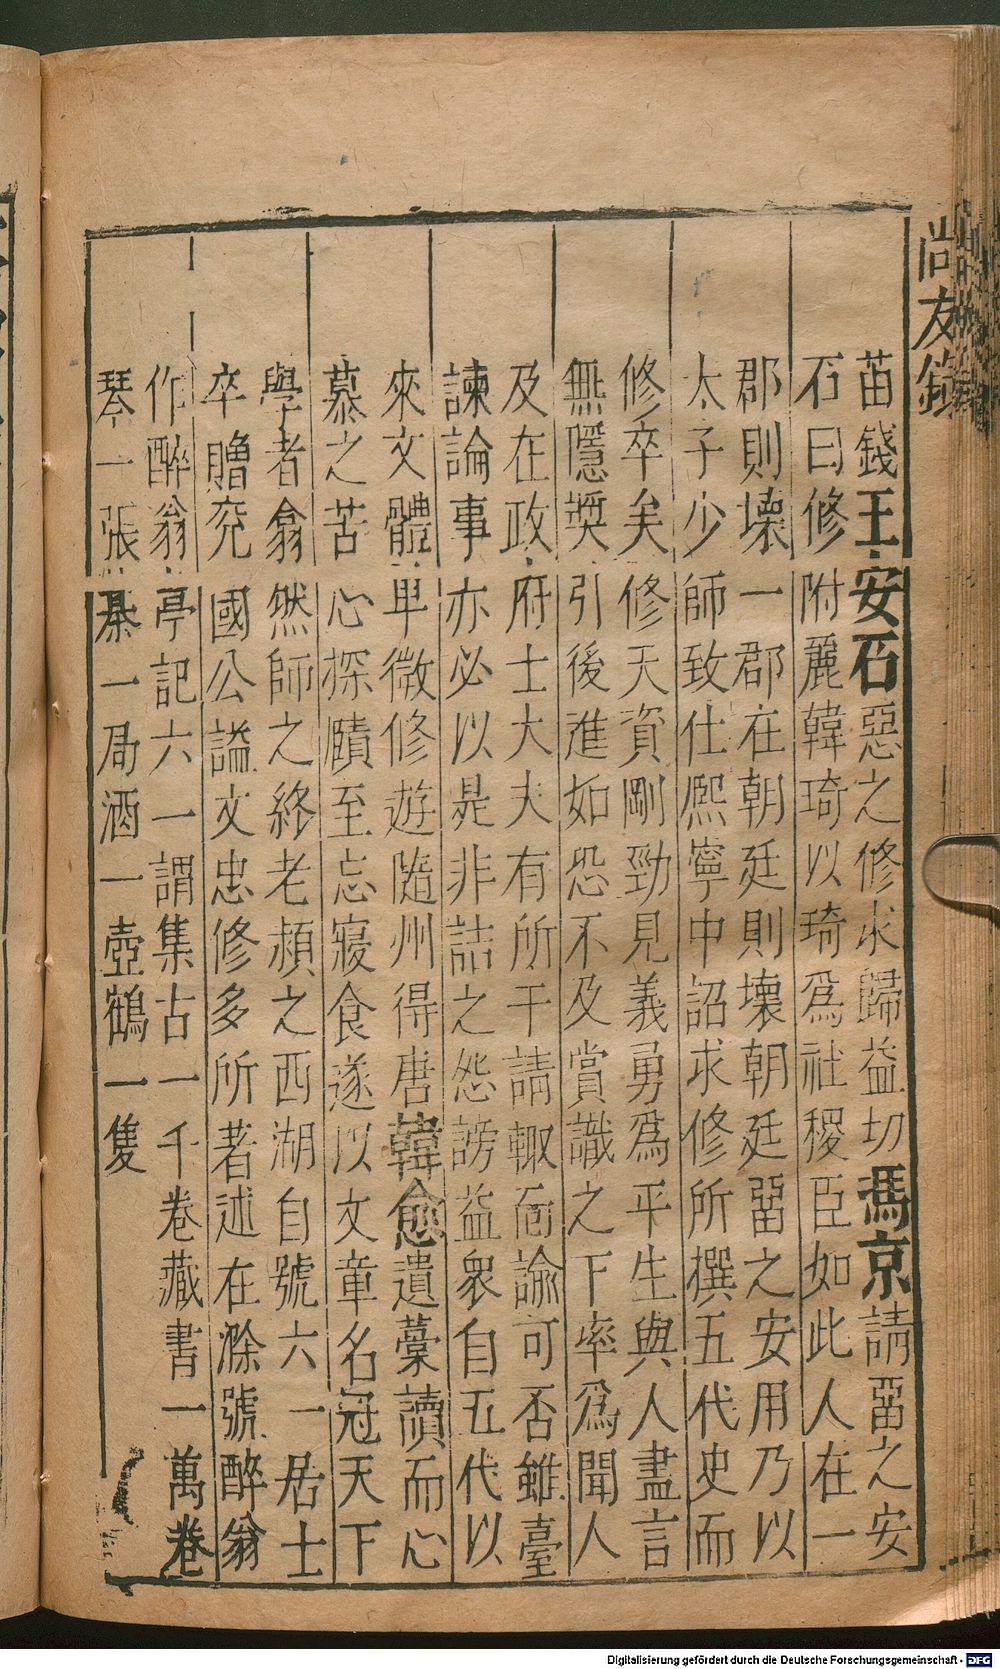 尚友錄
苗錢王安石惡之修求歸益切馮京請畱之安
石曰修附麗韓琦以琦爲社稷臣如此人在一
郡則壊一郡在朝廷則壊朝廷畱之安用乃以
太子少師致仕熈寧中詔求修所撰五代史而
修卒矣修天資剛勁見義勇爲平生與人盡言
無隱奬引後進如恐不及賞識之下率爲聞人
及在政府士大夫有所干請輙面諭可否雖臺
諫論事亦必以是非詰之怨謗益衆自五代以
來文體卑微修遊隨州得唐韓愈遺藳讀而心
慕之苦心探賾至忘寢食遂以文章名冠天下
學者翕然師之終老潁之西湖自號六一居士
卒贈兖國公謚文忠修多所著述在滁號醉翁
作醉翁亭記六一謂集古一千卷藏書一萬卷
琴一張棊一局酒一壺鶴一隻
Digitalisierung gefördert durch die Deutsche Forschungsgemeinschaft - DFG